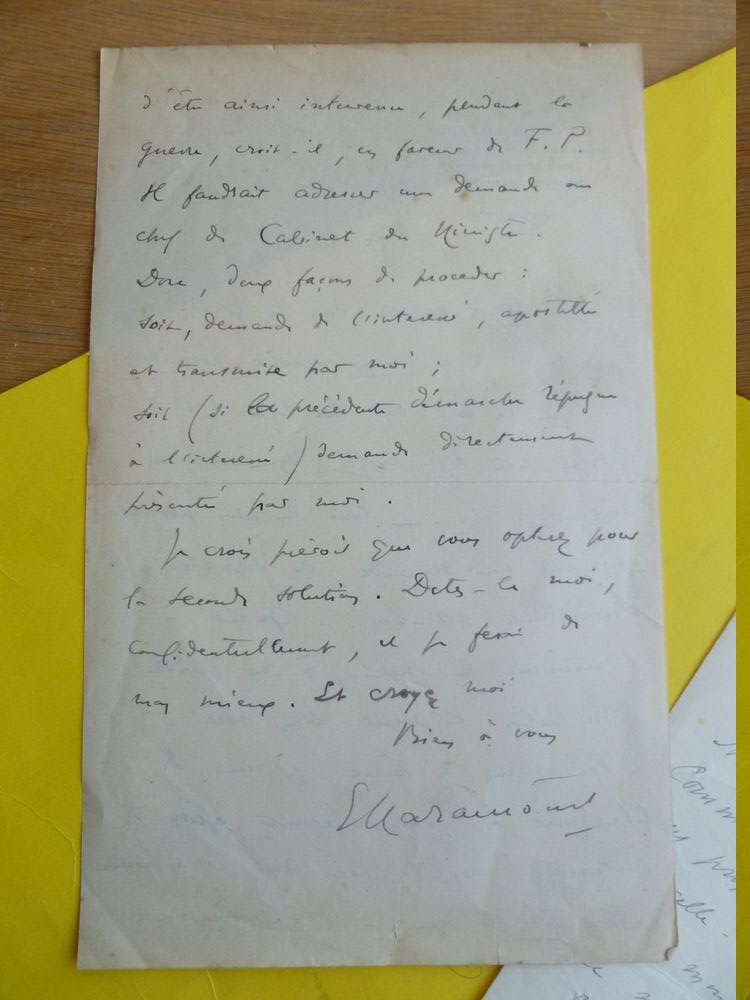 d'être ainsi intervenu, pendant la
guerre, croit-il, en faveur de F. P.
Il faudrait adresser une demande au
chef de Cabinet du Ministre.
Donc, deux façons de procéder :
soit, demande de l'intéressé, apostillée
et transmise par moi ;
soit (si la précédente démarche répugne
à l'intéressé) demande directement
présentée par moi.
Je crois prévoir que vous opterez pour
la seconde solution. Dites-le moi,
confidentiellement, et je ferai de
mon mieux. Et croyez moi
Bien à vous